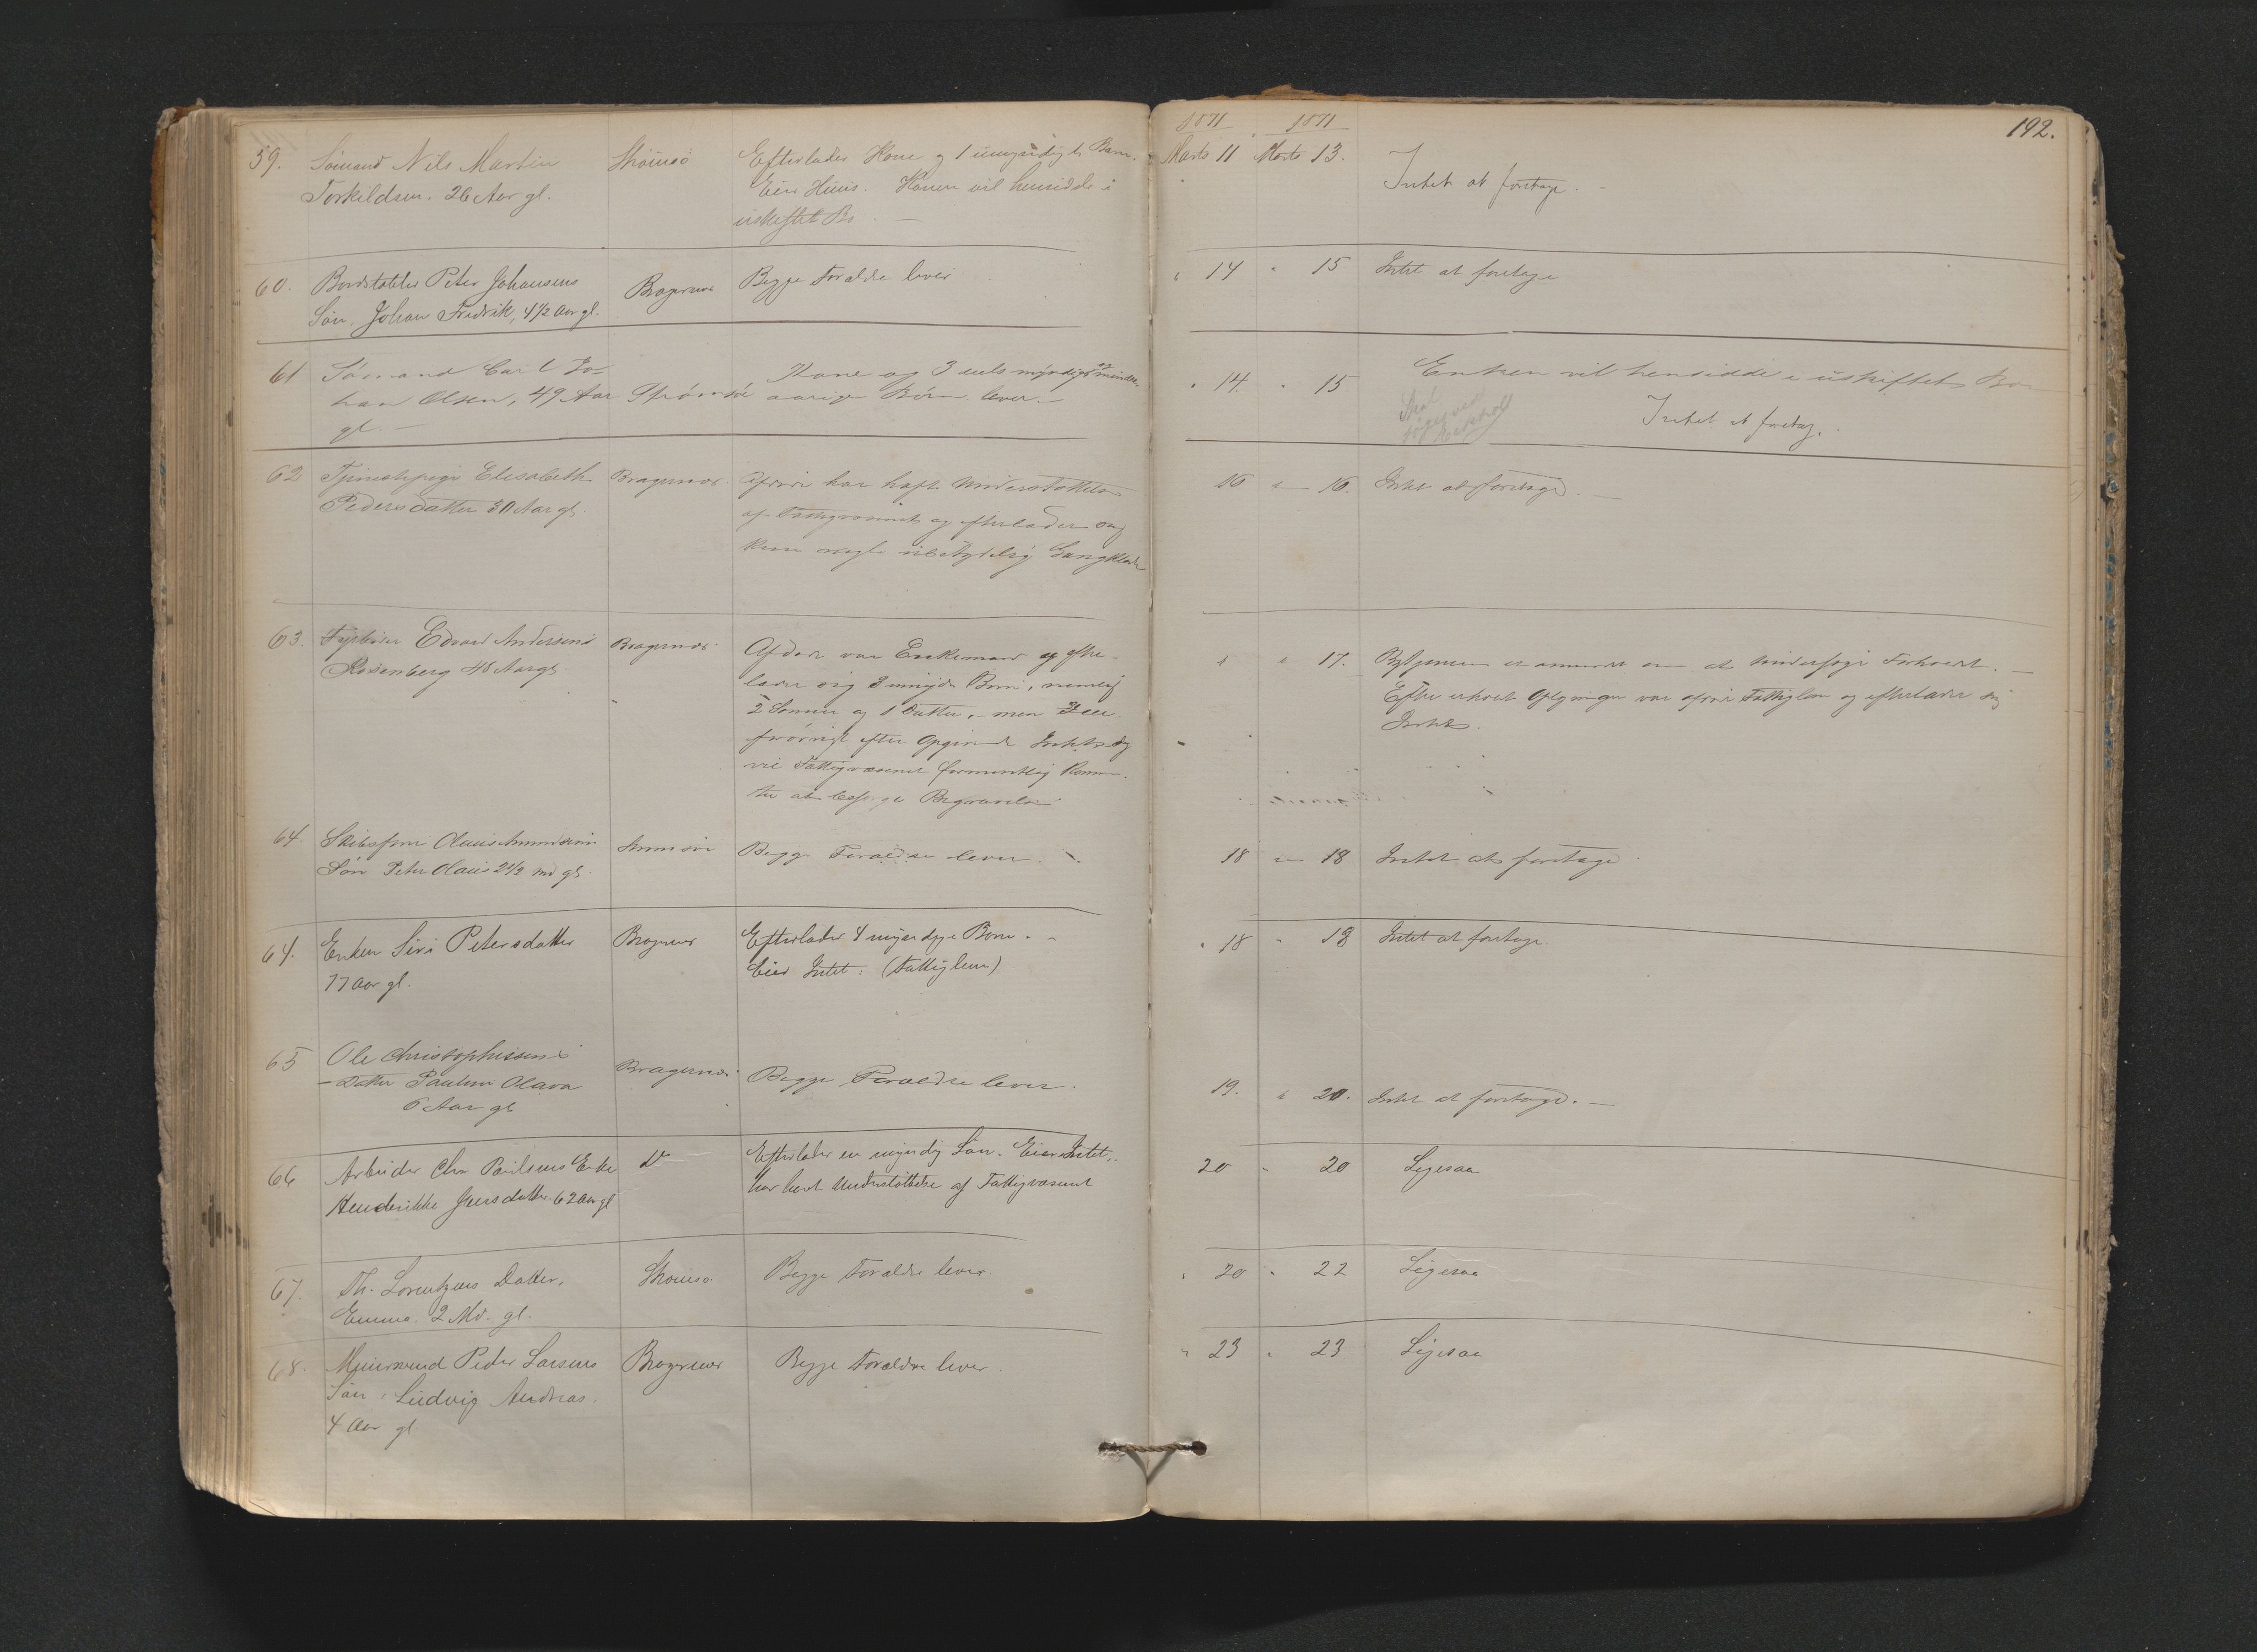 1871 1871 192.
59. Sømand Nils Martin Strømsø Efterlader Kone og 1 umyndigt Barn. Marts 11 Marts 13. Intet at foretage.
Torkildsen. 26 Aar gl. Eier Huus. Konen vil hensidde i
uskiftet Bo
60. Bordstabler Peter Johansens Bragernæs Begge Forældre lever " 14 " 15 Intet at foretage
Søn, Johan Fredrik, 4 1/2 Aar gl.
61 Sømand Carl Jo- Strømsø Kone og 3 dels myndige og mindre- " 14. " 15 Enken vil hensidde i uskiftet Bo
han Olsen, 49 Aar aarige Børn lever.
gl. Intet at foretag.
62 Tjenestepige Elisabeth Bragernæs Afdøde har haft Understøttelse 16 " 16. Intet at foretage.
Pedersdatter 30 Aar gl. af Fattigvæsenet og efterlader sig
kun nogle ubetydelig Gangklæder
63. Edvard Andersens Bragernæs Afdøde var Enkemand og efter- " " 17. er anmodet om at undersøge Forholdet.
Rosenberg 48 Aar gl lader sig 3 umynd. Børn, nemlig Efter erholdt Oplysninger var afdøde Fattiglem og efterlader sig
2 Sønner og 1 Datter, men Intet.
forøvrigt efter Opgivende Intet og
vil Fattigvæsenet formentlig komme
til at besørge Begravelse
64. Olaus Amundsens Strømsø Begge Forældre lever. 18 " 18 Intet at foretage
Søn Peter Olaus 2 1/2 Md gl.
64. Enken Siri Petersdatter Bragernæs Efterlader 4 myndige Børn. " 18 " 18 Intet at foretage.
77 Aar gl. Eier Intet. (Fattiglem)
65 Ole Christophersens Bragernæs Begge Forældre lever. 19. " 20. Intet at foretage.
Datter Pauline Olava
6 Aar gl
66 Arbeider Chr Paulsens Enke Do Efterlader en myndig Søn. Eier Intet, 20 " 20 Ligesaa
Henderikke Jensdatter 62 Aar gl har havt Understøttelse af Fattigvæsenet
67. Th. Lorentzens Datter, Strømsø Begge Forældre lever. " 20 " 22 Ligesaa
Emma. 2 Md. gl.
68. Muursvend Peder Larsens Bragernæs Begge Forældre lever. " 23 " 23 Ligesaa
Søn, Ludvig Andreas.
4 Aar gl